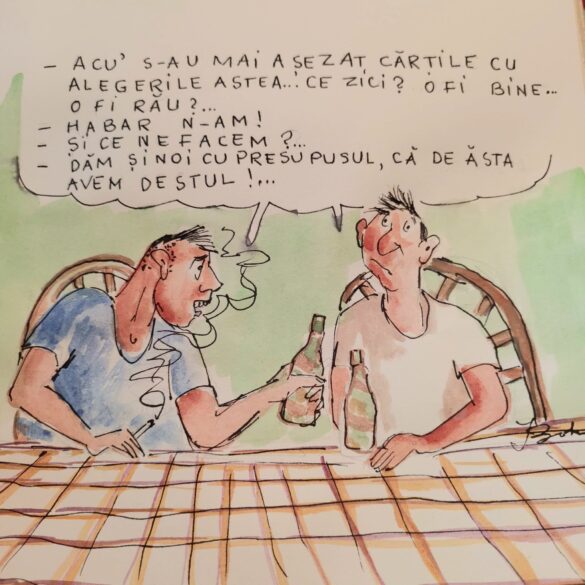 - ACU' S-AU MAI AȘEZAT CĂRȚILE CU
ALEGERILE ASTEA... CE ZICI? O FI BINE...
O FI RĂU?...
- HABAR N-AM!
- ȘI CE NE FACEM?...
- DĂM ȘI NOI CU PRESUPUSUL, CĂ DE ĂSTA
AVEM DESTUL!...